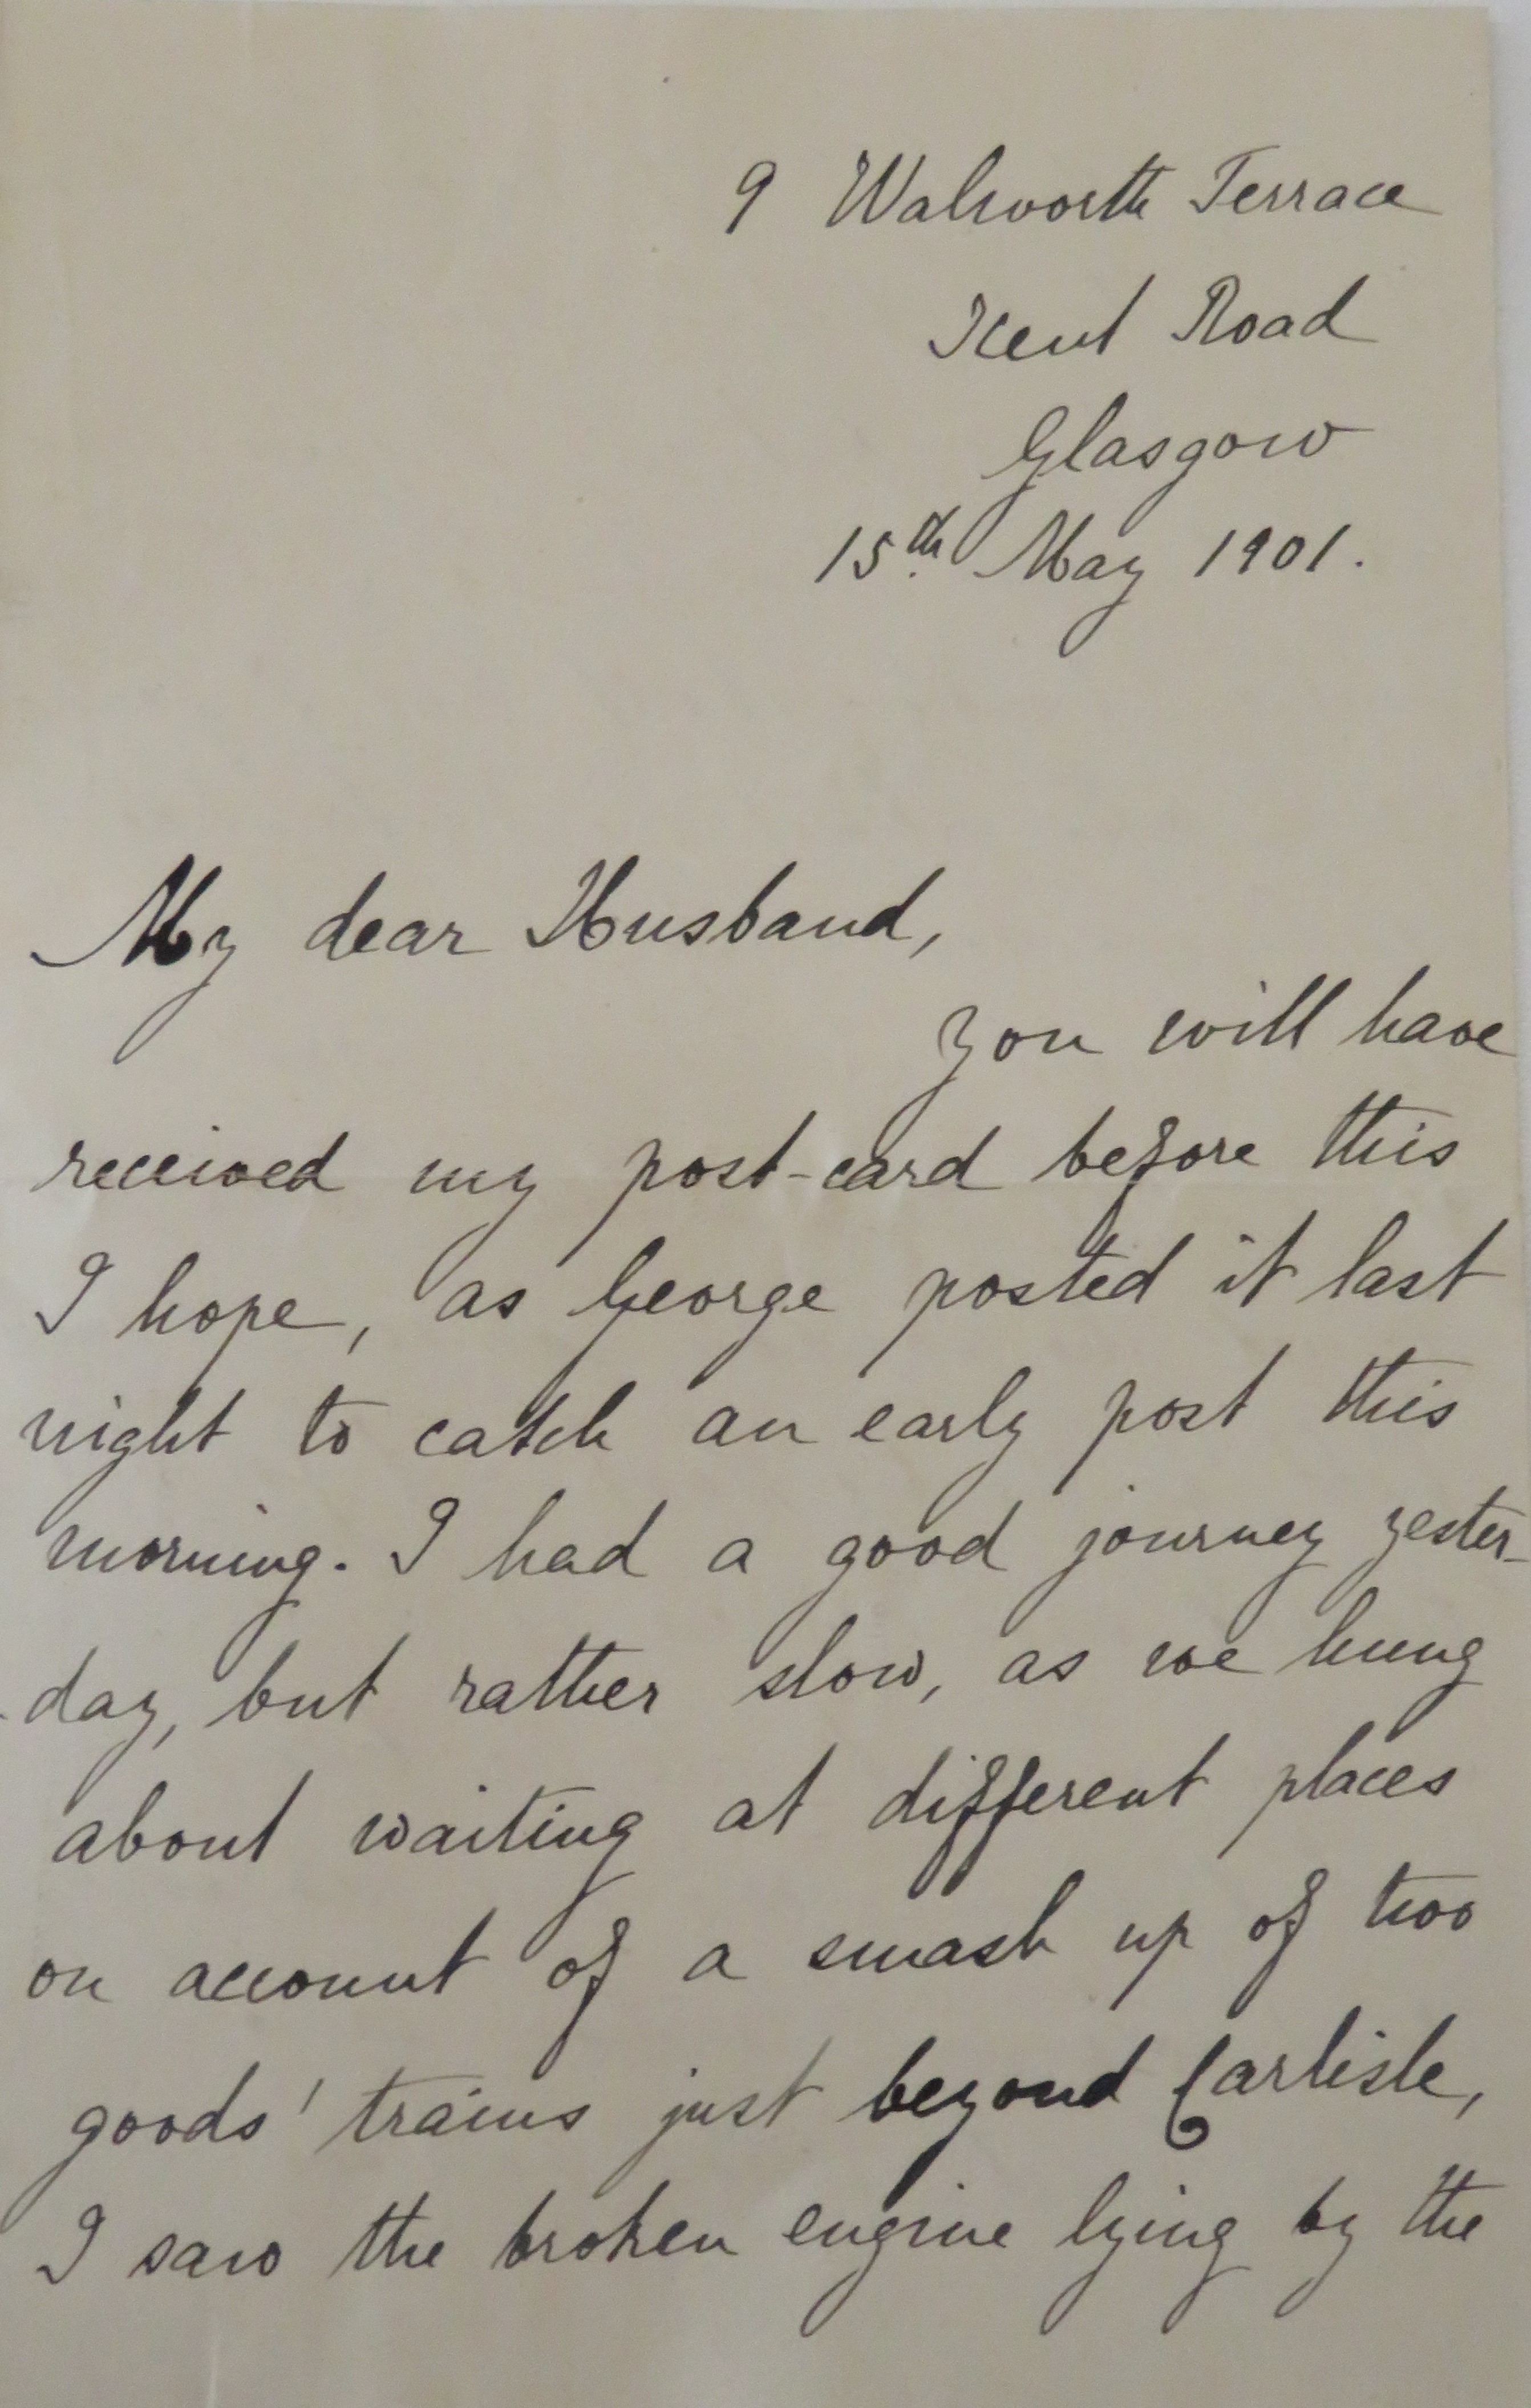 9 Walworth Terrace
Kent Road
Glasgow
15th May 1901.
My dear Husband,
You will have
received my post-card before this
I hope, as George posted it last
night to catch an early post this
morning. I had a good journey yester-
-day, but rather slow, as we hung
about waiting at different places
on account of a smash up of two
goods' trains just beyond Carlisle,
I saw the broken engine lying by the